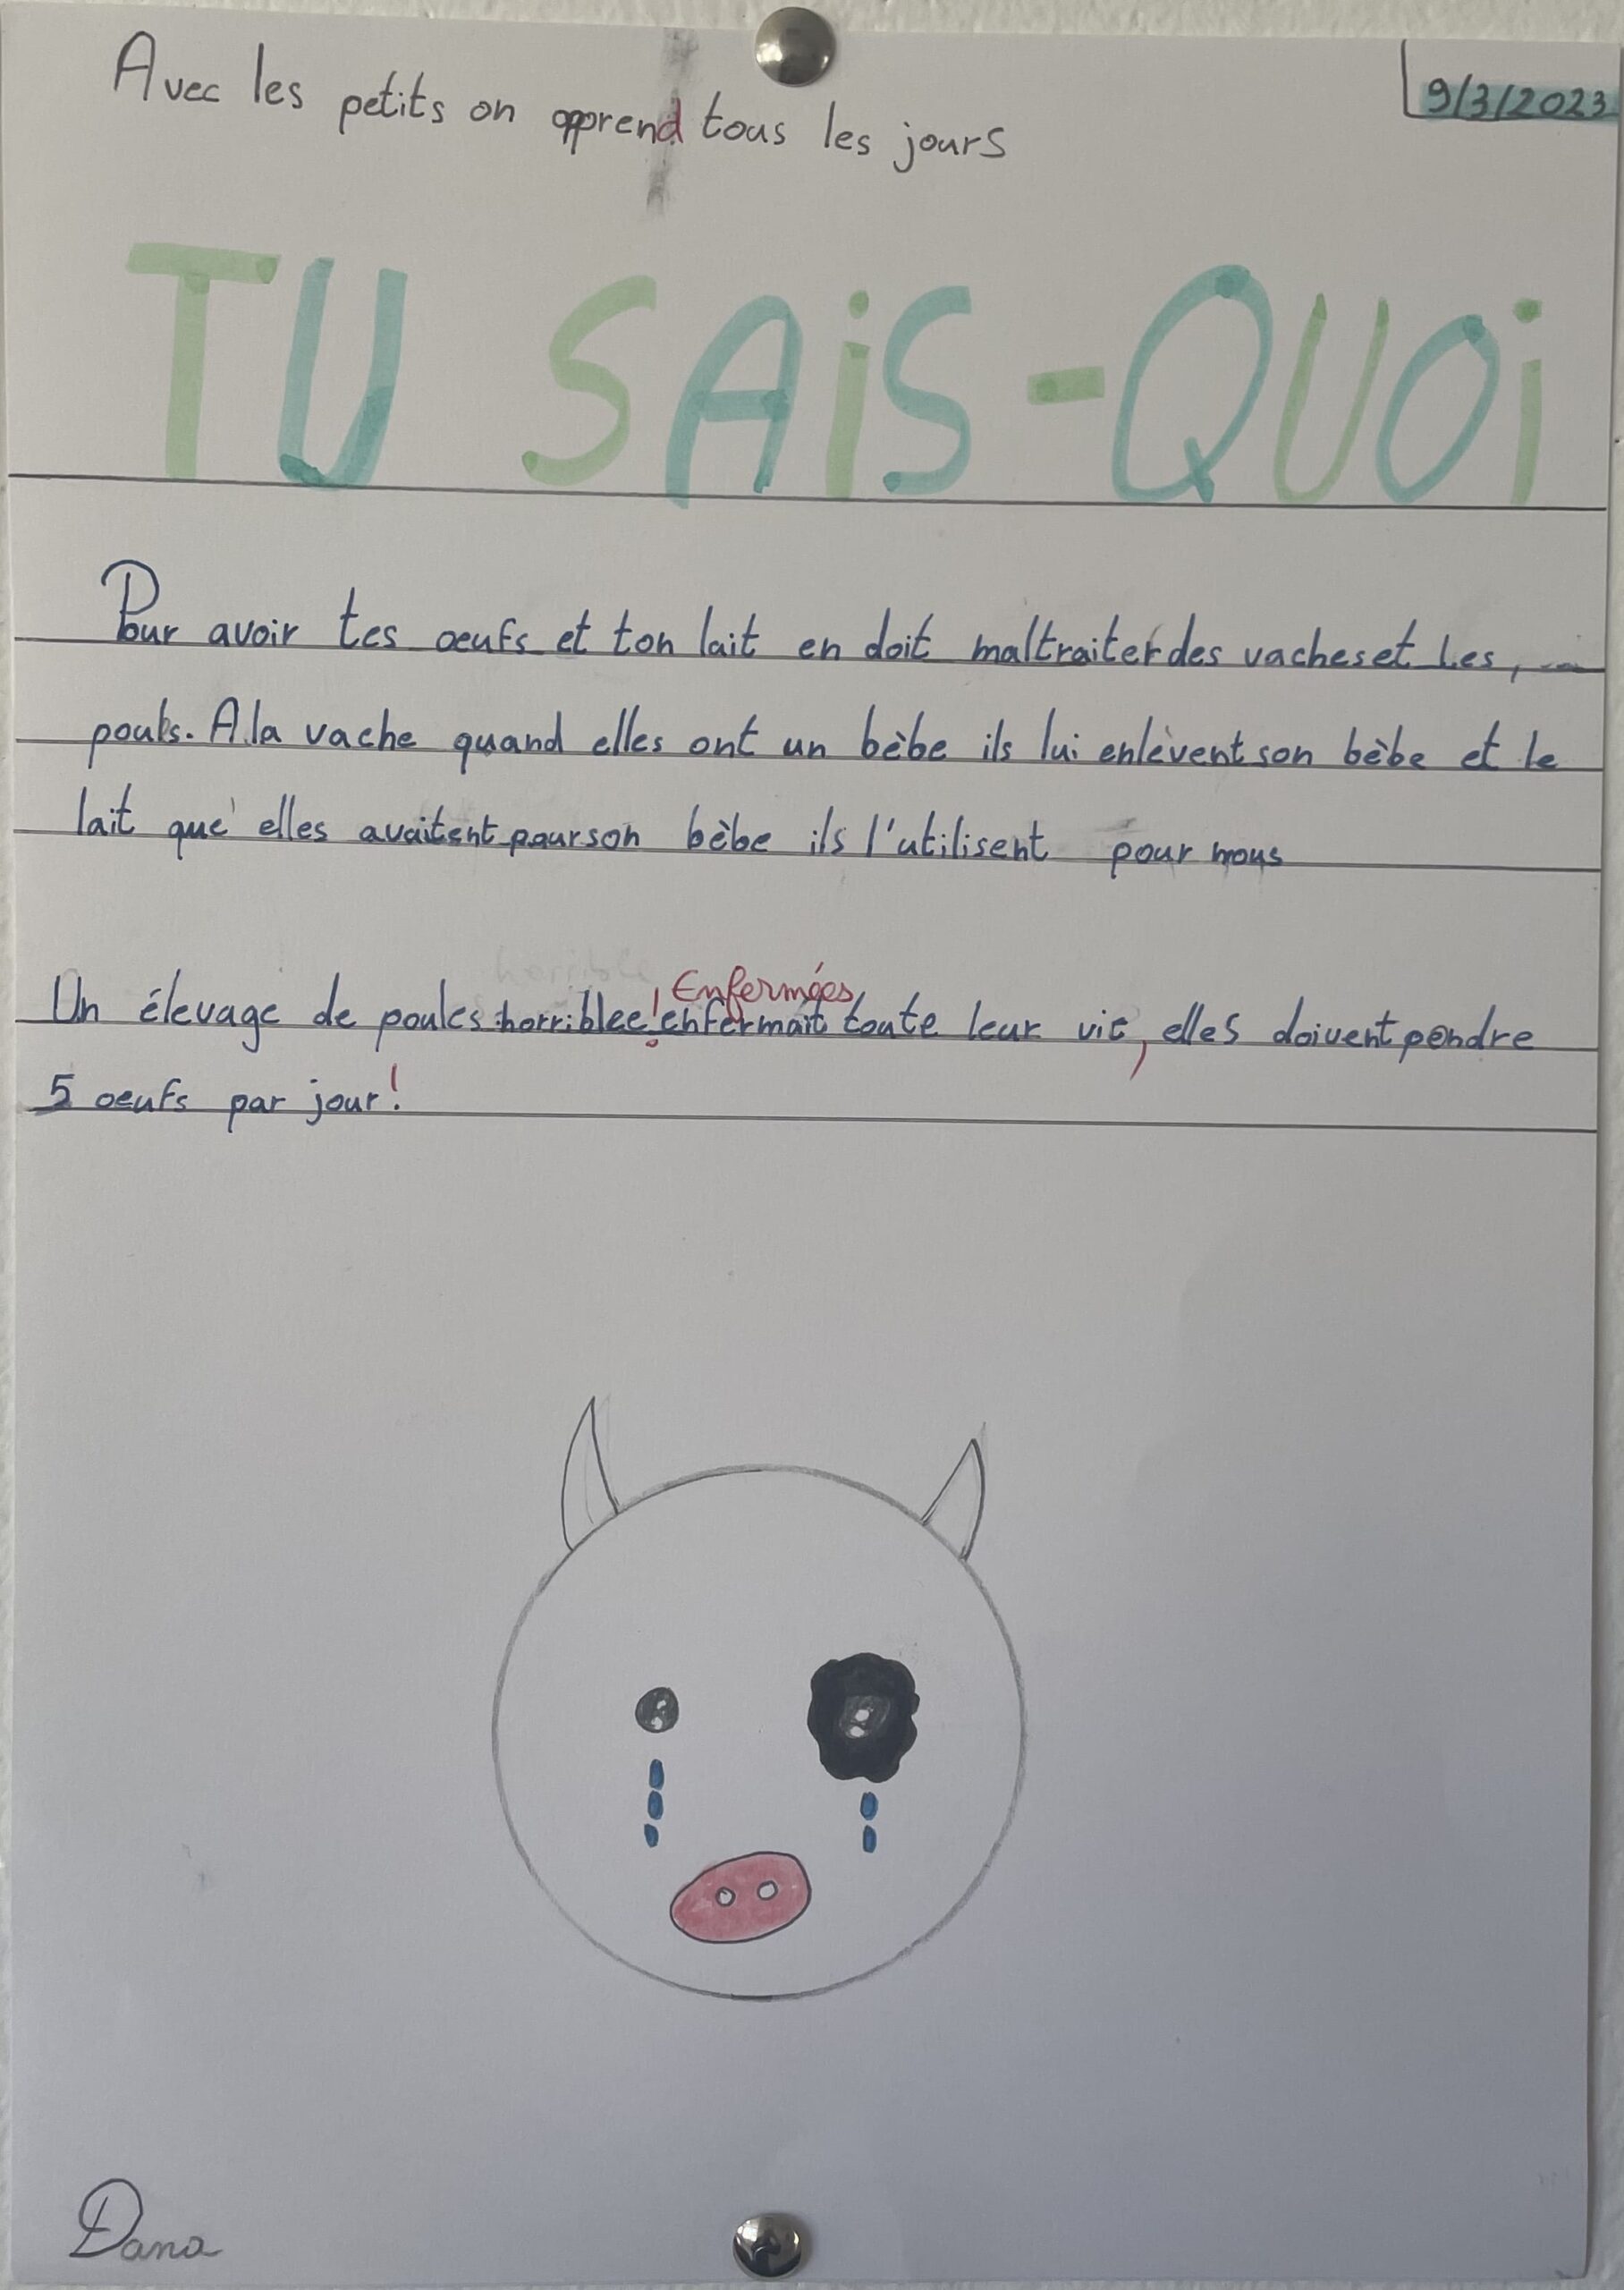 Avec les petits on apprend tous les jours
9/3/2023
TU SAiS-QUOi
Pour avoir tes oeufs et ton lait en doit maltraiter des vaches et les,
poules. A la vache quand elles ont un bèbe ils lui enlèvent son bèbe et le
lait que elles avaitent pour son bèbe ils l'utilisent pour nous
Enfermées
Un élevage de poules horriblee! enfermait toute leur vie, elles doivent pondre
5 oeufs par jour!
Dana